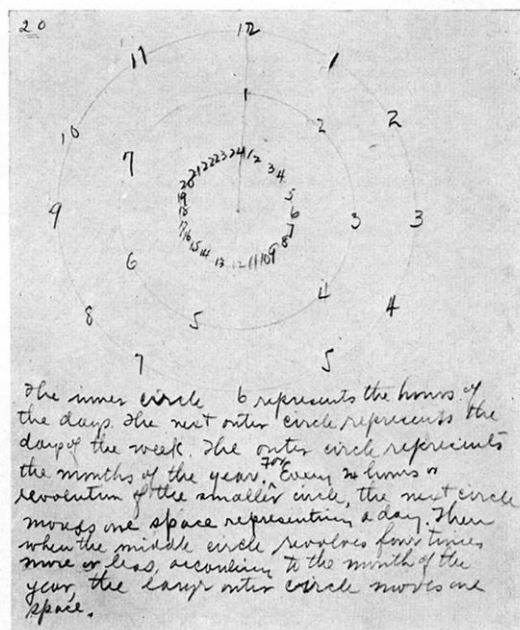 20
12
1
2
3
4
5
6
7
8
9
10
11
1
2
3
4
5
6
7
24 1 2 3 4 5 6 7 8 9 10 11 12 13 14 15 16 17 18 19 20 21 22 23
The inner circle represents the hours of
the days. The next outer circle represents the
days of the week. The outer circle represents
the months of the year. For Every 24 hours or
revolution of the smaller circle, the next circle
moves one space representing a day. Then
when the middle circle revolves four times
more or less, according to the month of the
year, the large outer circle moves one
space.